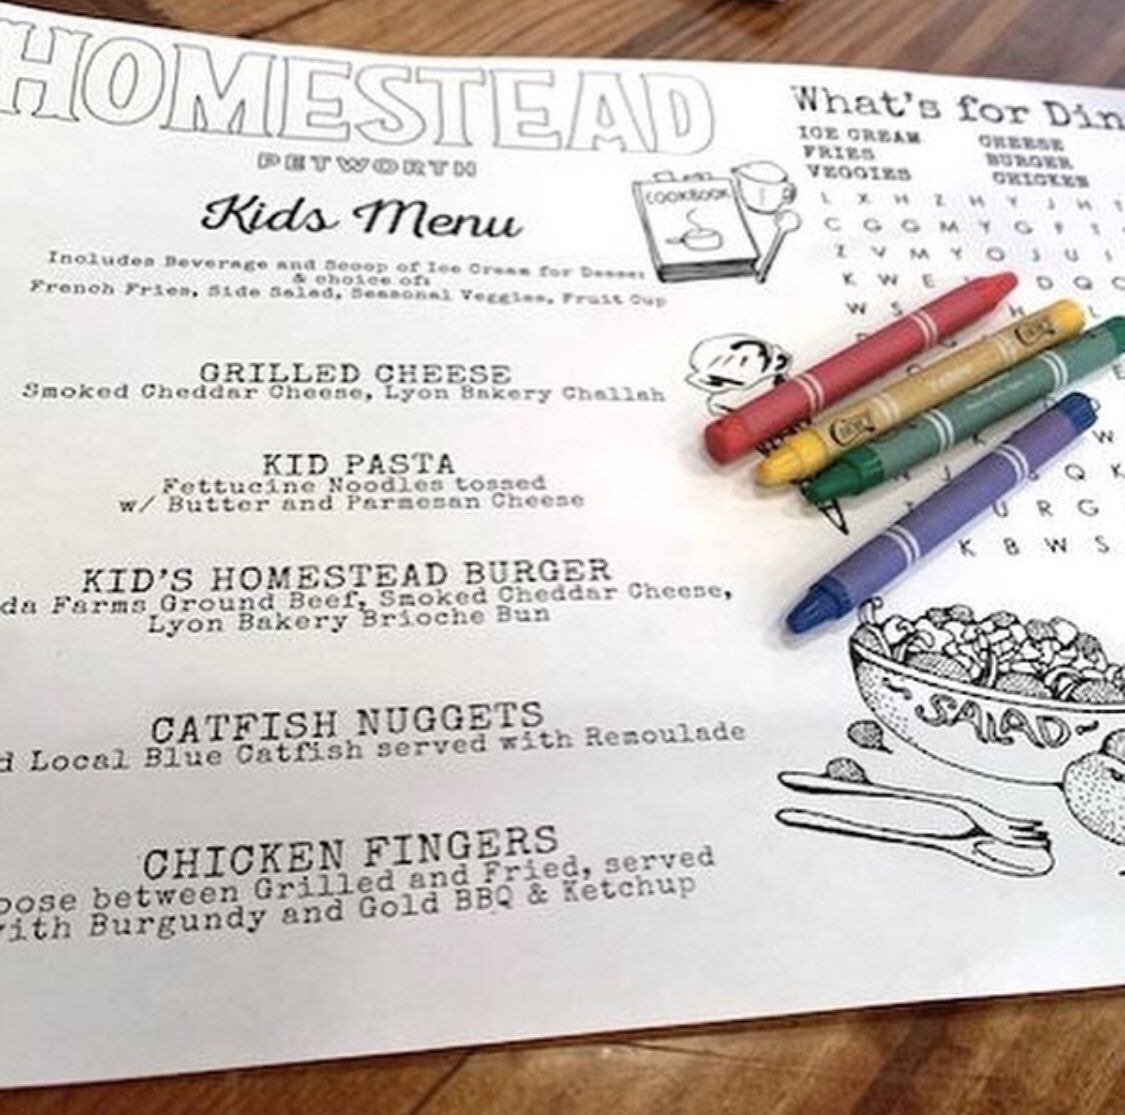 HOMESTEAD
PETWORTH
Kids Menu
Includes Beverage and Scoop of Ice Cream for Desse
& choice of:
French Fries, Side Salad, Seasonal Veggies, Fruit Cup
GRILLED CHEESE
Smoked Cheddar Cheese, Lyon Bakery Challah
KID PASTA
Fettucine Noodles tossed
w/ Butter and Parmesan Cheese
KID'S HOMESTEAD BURGER
da Farms Ground Beef, Smoked Cheddar Cheese,
Lyon Bakery Brioche Bun
CATFISH NUGGETS
d Local Blue Catfish served with Remoulade
CHICKEN FINGERS
oose between Grilled and Fried, served
with Burgundy and Gold BBQ & Ketchup
COOKBOOK
What's for Din
ICE CREAM CHEESE
FRIES BURGER
VEGGIES CHICKEN
L X H Z H Y J H
C G G M Y G P T
Z V M Y O J U I
K W E D Q C
W S H L
E
W
Q K
U R G
K B W S
SALAD